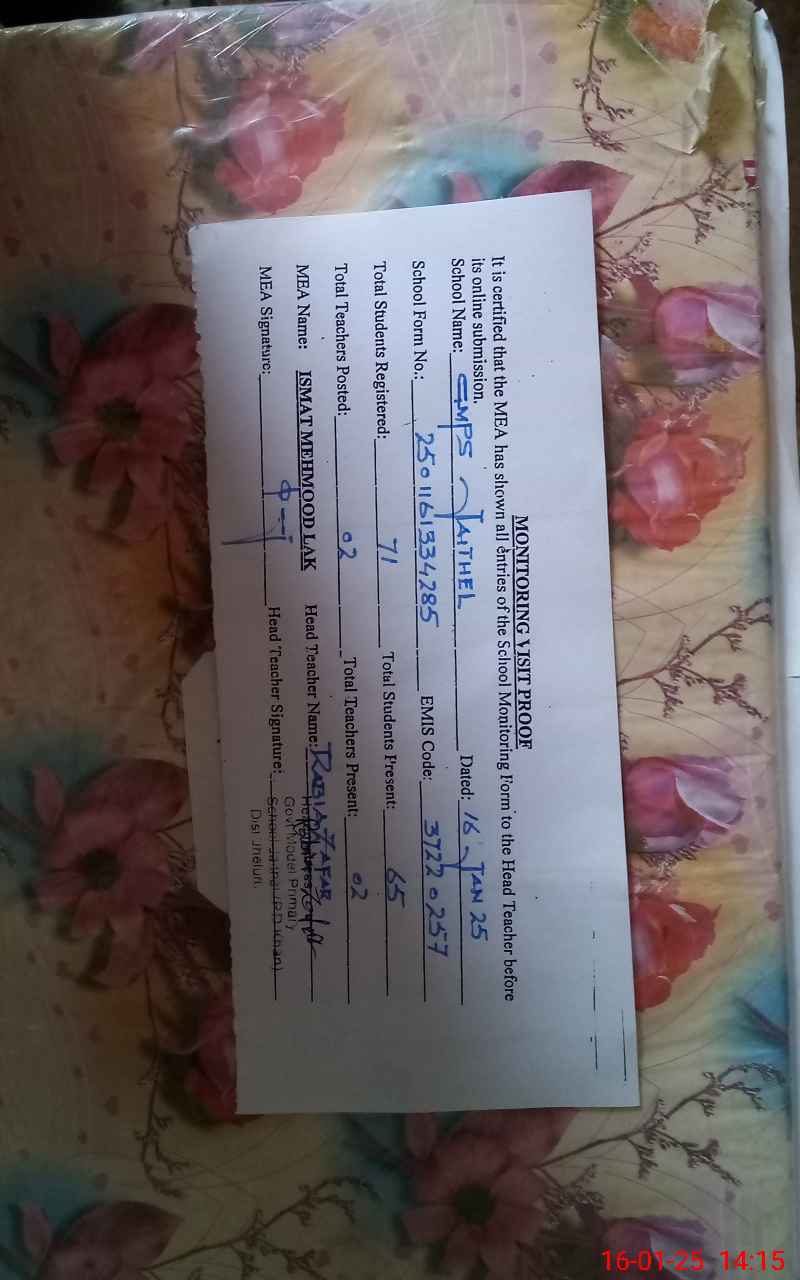 MONITORING VISIT PROOF
It is certified that the MEA has shown all entries of the School Monitoring Form to the Head Teacher before
its online submission.
School Name: GMPS JAITHEL Dated: 16 JAN 25
School Form No.: 2501161334285 EMIS Code: 37220257
Total Students Registered: 71 Total Students Present: 65
Total Teachers Posted: 02 Total Teachers Present: 02
MEA Name: ISMAT MEHMOOD LAK Head Teacher Name: RABIA ZAFAR
MEA Signature: Head Teacher Signature:
Govt Model Primary
School Jaithal (P.D Khan)
Dist Jhelum
16-01-25 14:15